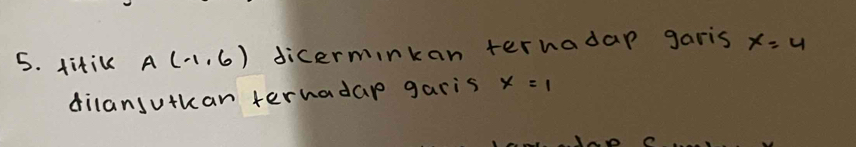 5. titik A (-1,6) dicerminkan terhadap garis x = 4
dilanjutkan terhadap garis x = 1